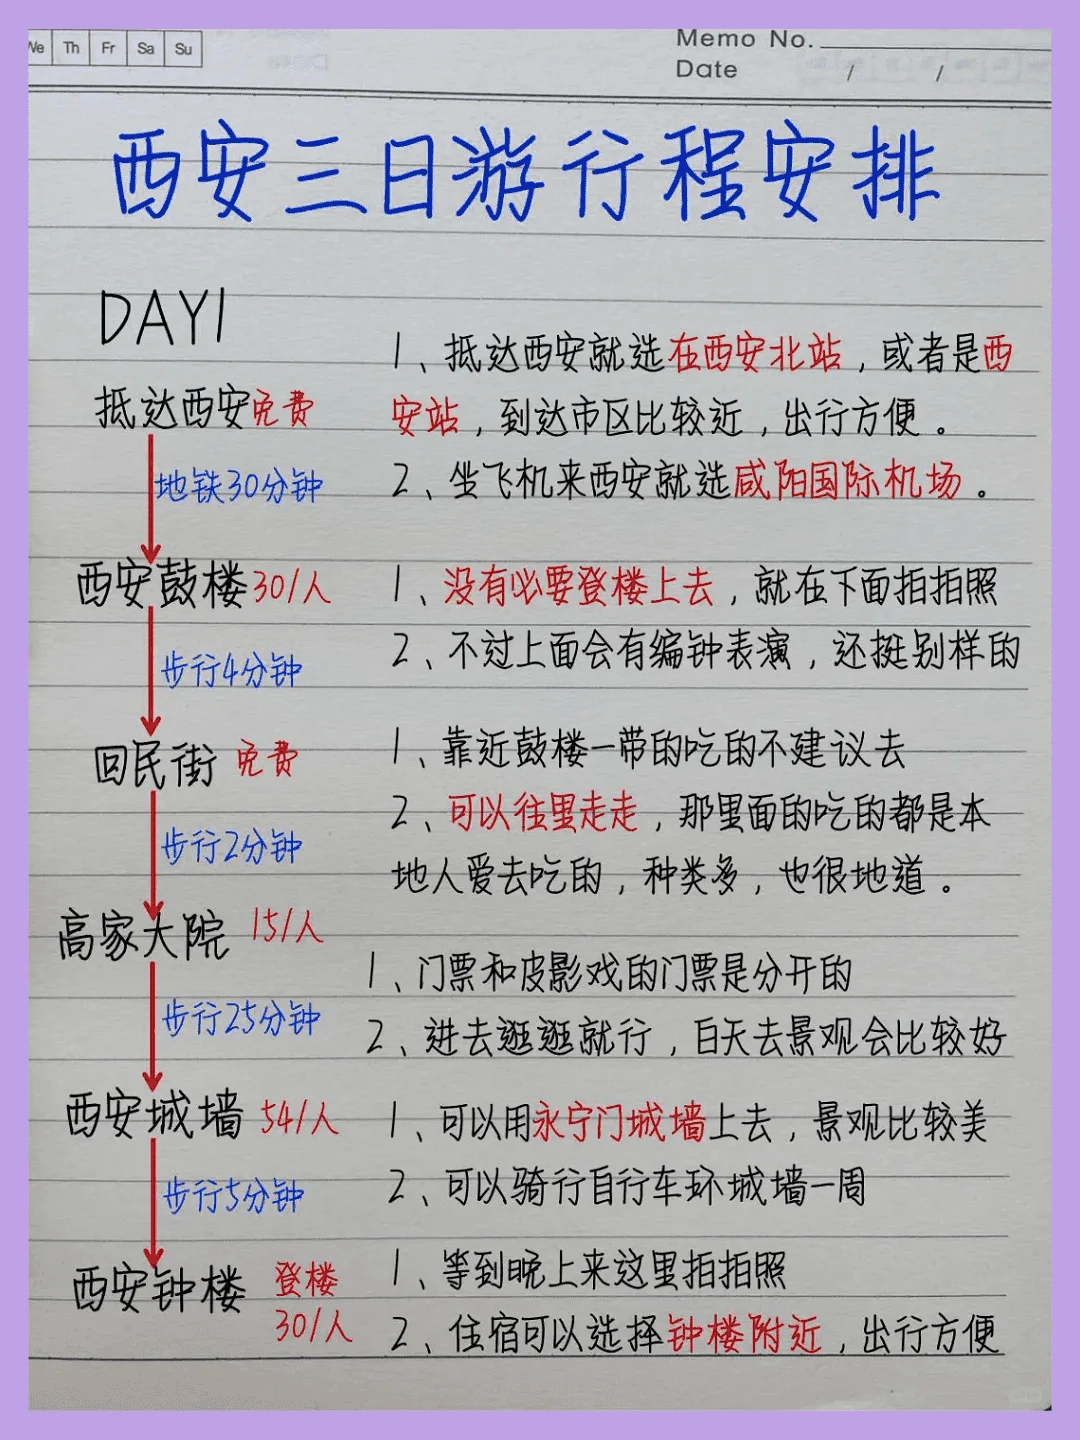 We Th Fr Sa Su
Memo No.
Date / /
西安三日游行程安排
DAY1
抵达西安免费
1、抵达西安就选在西安北站，或者是西
安站，到达市区比较近，出行方便。
地铁30分钟
2、坐飞机来西安就选咸阳国际机场。
西安鼓楼30/人
1、没有必要登楼上去，就在下面拍拍照
2、不过上面会有编钟表演，还挺别样的
步行4分钟
回民街 免费
1、靠近鼓楼一带的吃的不建议去
2、可以往里走走，那里面的吃的都是本
地人爱去吃的，种类多，也很地道。
步行2分钟
高家大院 15/人
1、门票和皮影戏的门票是分开的
2、进去逛逛就行，白天去景观会比较好
步行25分钟
西安城墙 54/人
1、可以用永宁门城墙上去，景观比较美
2、可以骑行自行车环城墙一周
步行5分钟
西安钟楼 登楼
30/人
1、等到晚上来这里拍拍照
2、住宿可以选择钟楼附近，出行方便